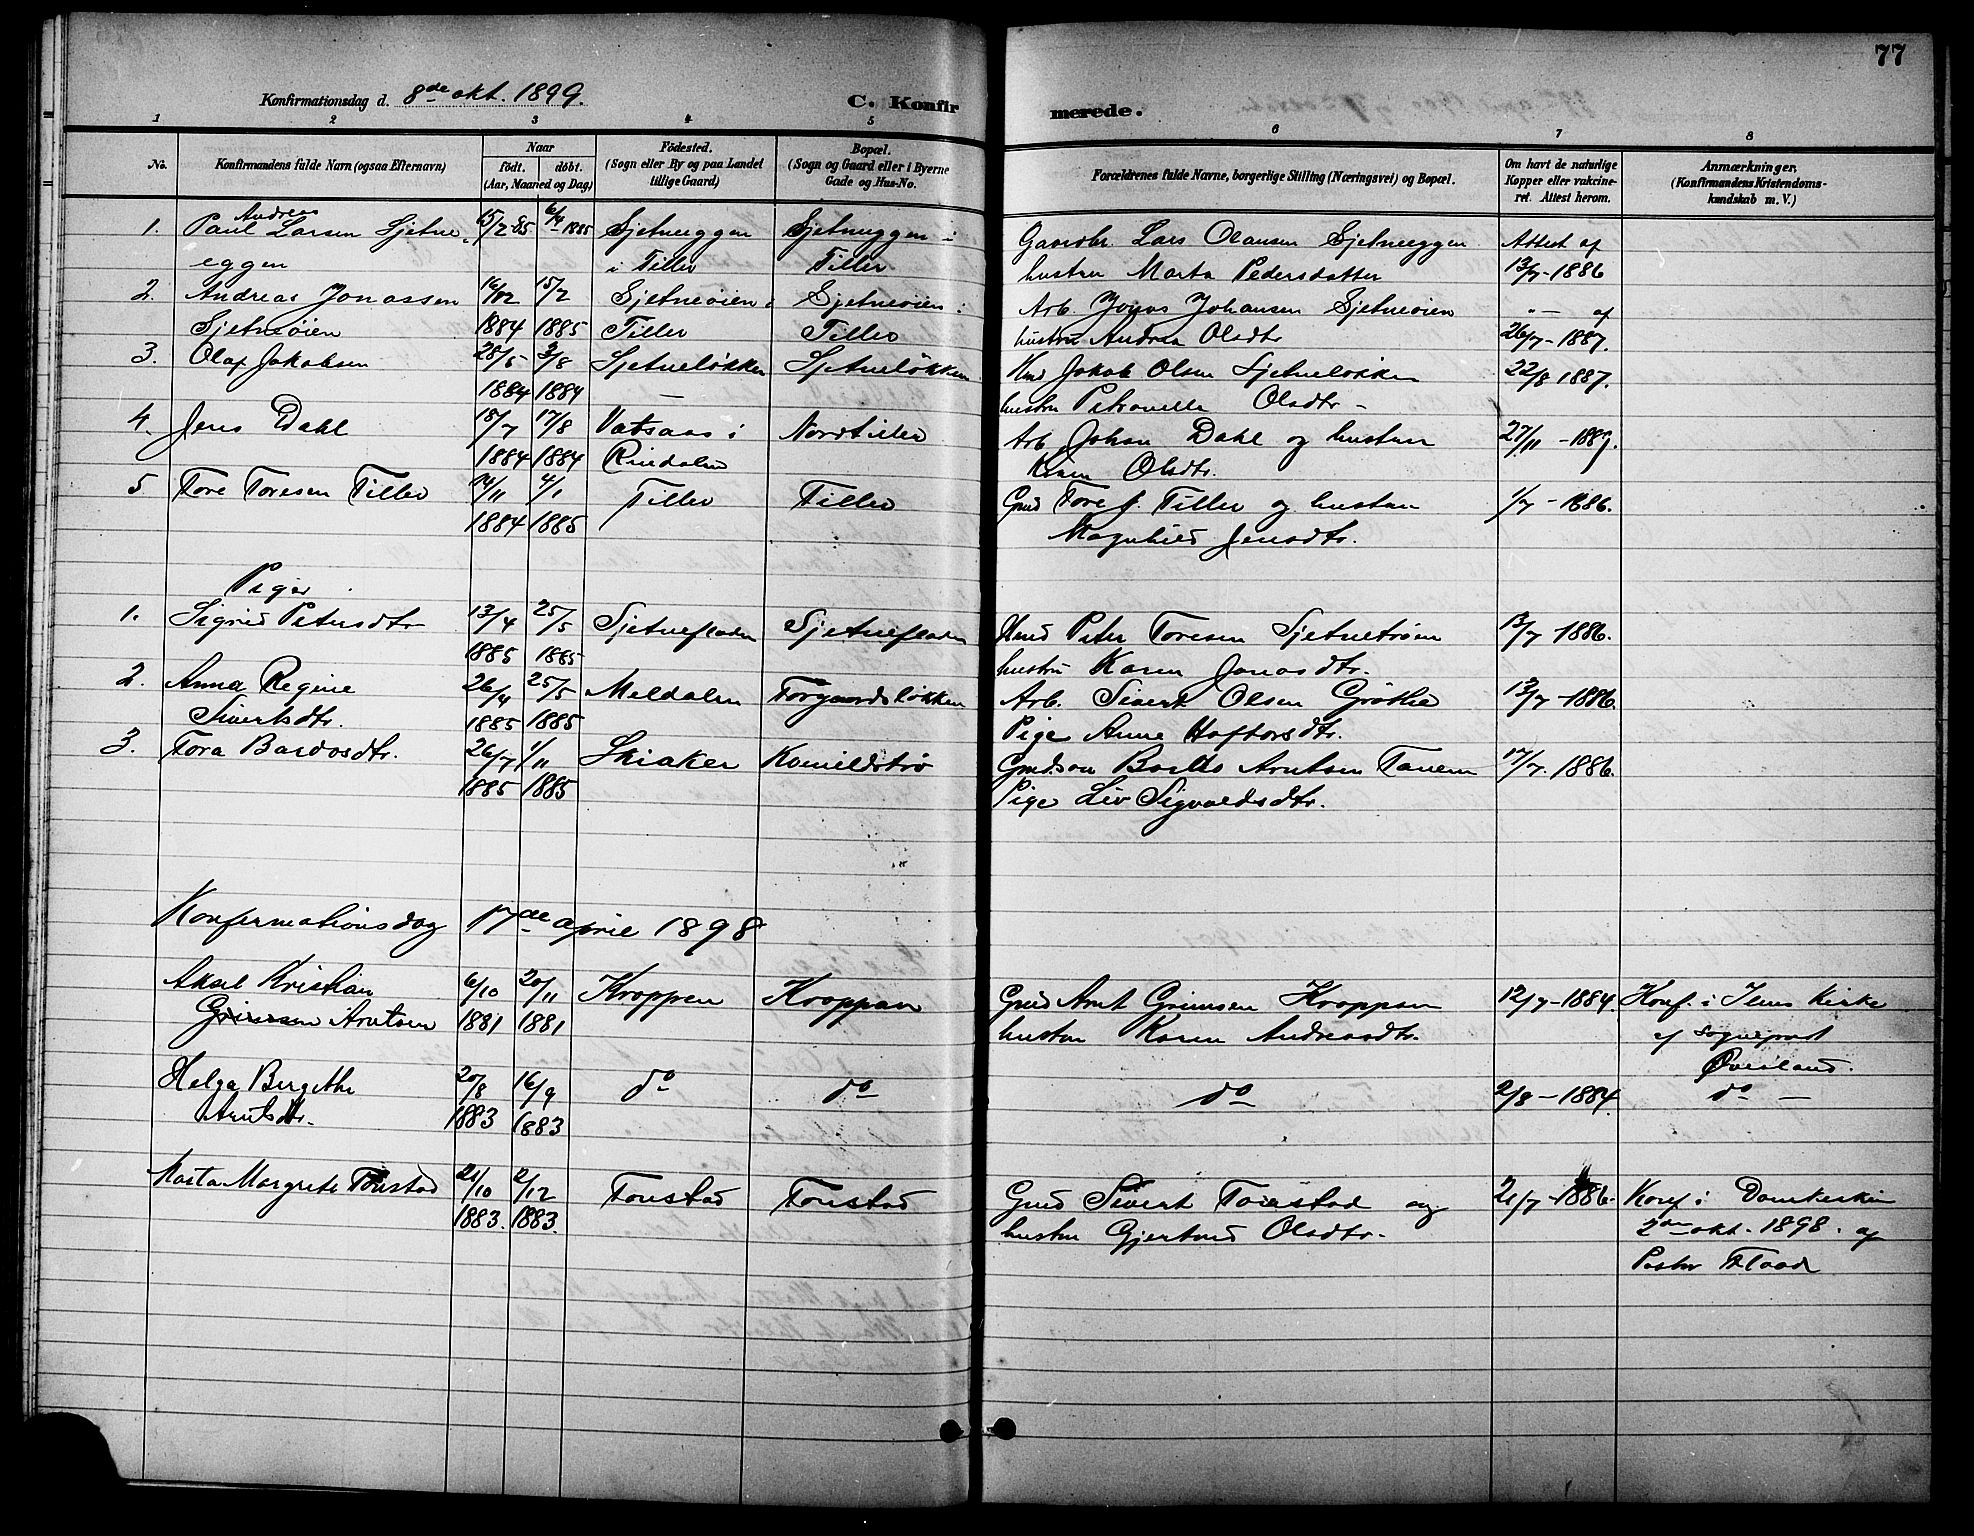 77
Konfirmationsdag d. 8de okt. 1899.
C. Konfirmerede.
1 2 3 4 5 6 7 8
No.
Konfirmandens fulde Navn (ogsaa Efternavn)
Naar
födt. döbt.
(Aar, Maaned og Dag)
Födested.
(Sogn eller By og paa Landet
tillige Gaard)
Bopæl.
(Sogn og Gaard eller i Byerne
Gade og Hus-No.
Forældrenes fulde Navne, borgerlige Stilling (Næringsvei) og Bopæl.
Om havt de naturlige
Kopper eller vakcine-
ret. Attest herom.
Anmærkninger.
(Konfirmandens Kristendoms-
kundskab m. V.)
Andreas
1. Paul Larsen Sjetne 15/2 85 6/4 1885 Sjetneggen Sjetneggen i Gaardbr. Lars Olausen Sjetneeggen Attest af
eggen i Tiller Tiller hustru Marta Pedersdatter 13/7-1886
2. Andreas Jonassen 15/2 Sjetneöien i Sjetneöien i Arb. Jonas Johansen Sjetneöien - af
Sjetneöien 1884 1885 Tiller Tiller hustru Andrea Olsdtr 26/7-1887.
3. Olaf Jakobsen 28/5 3/8 Sjetneløkken Sjetneløkken Jakob Olsen Sjetneløkken 22/8 1887.
1884 1884 — hustru Petronelle Olsdtr -
4. Jens Dahl 18/7 17/8 Vatsaas i Nordtiller Arb. Johan Dahl og hustru 27/11-1889.
1884 1884 Rindalen Olsdtr.
5 Tore Toresen Tiller 14/11 4/1 Tiller Tiller Grd Tore J. Tiller og hustru 1/7-1886.
1884 1885 Magnhild Jensdtr.
Piger
1. Sigrid Petersdtr 13/4 25/5 Sjetnefladen Sjetnefladen Peter Toresen Sjetnetrøen 13/7 1886.
1885 1885 hustru Karen Jonasdtr.
2. Anna Regine 26/4 25/5 Meldalen Torgaardsløkken Arb. Sivert Olsen Grøthe 13/7-1886.
Sivertsdtr. 1885 1885 Pige Anne Haftorsdtr.
3. Tora Bardosdtr. 26/7 1/11 Skiaker Arntsen Tanem 17/7. 1886.
1885 1885 Pige Liv Sigvaldsdtr.
Konfirmationsdag 17de april 1898
Aksel Kristian 6/10 20/11 Kroppen Kroppan Grd Arnt Grimsen Kroppan 12/7-1884. Konf. i Ilens Kirke
Grimsen Arntsen 1881 1881 hustru Karen Andreasdtr. af Sogneprest
Øverland.
Helga Bergithe 20/8 16/9 do do do 2/8-1884. do —
Arntsdtr. 1883 1883
Marta Margrete Tonstad 21/10 2/12 Tonstad Tonstad Grd Sivert Tonstad og 21/7-1886. Konf. i Domkirken
1883. 1883. hustru Gjertrud Olsdtr. 2den okt. 1898. af
Pastor Flood